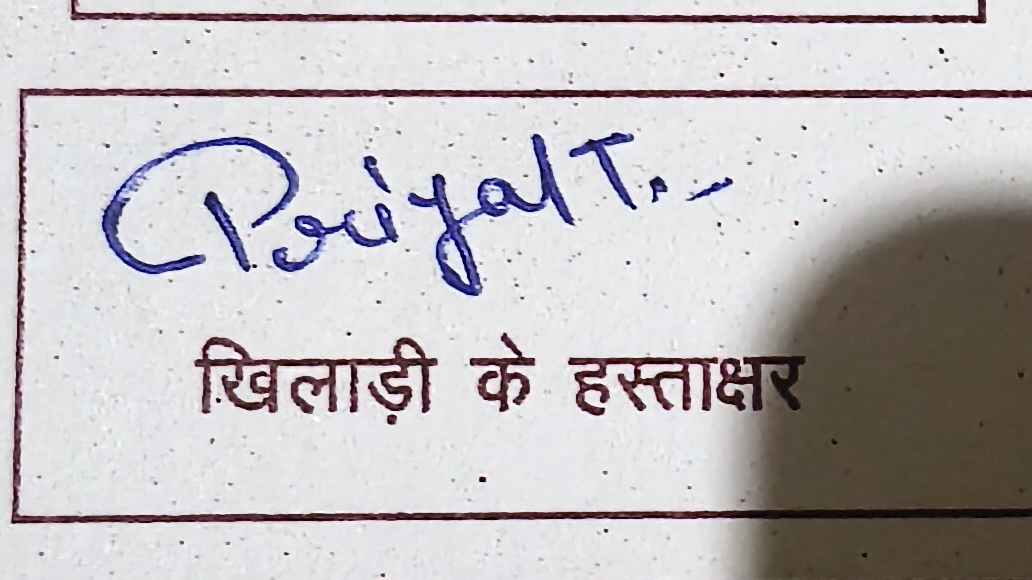 Priyal T.
खिलाड़ी के हस्ताक्षर